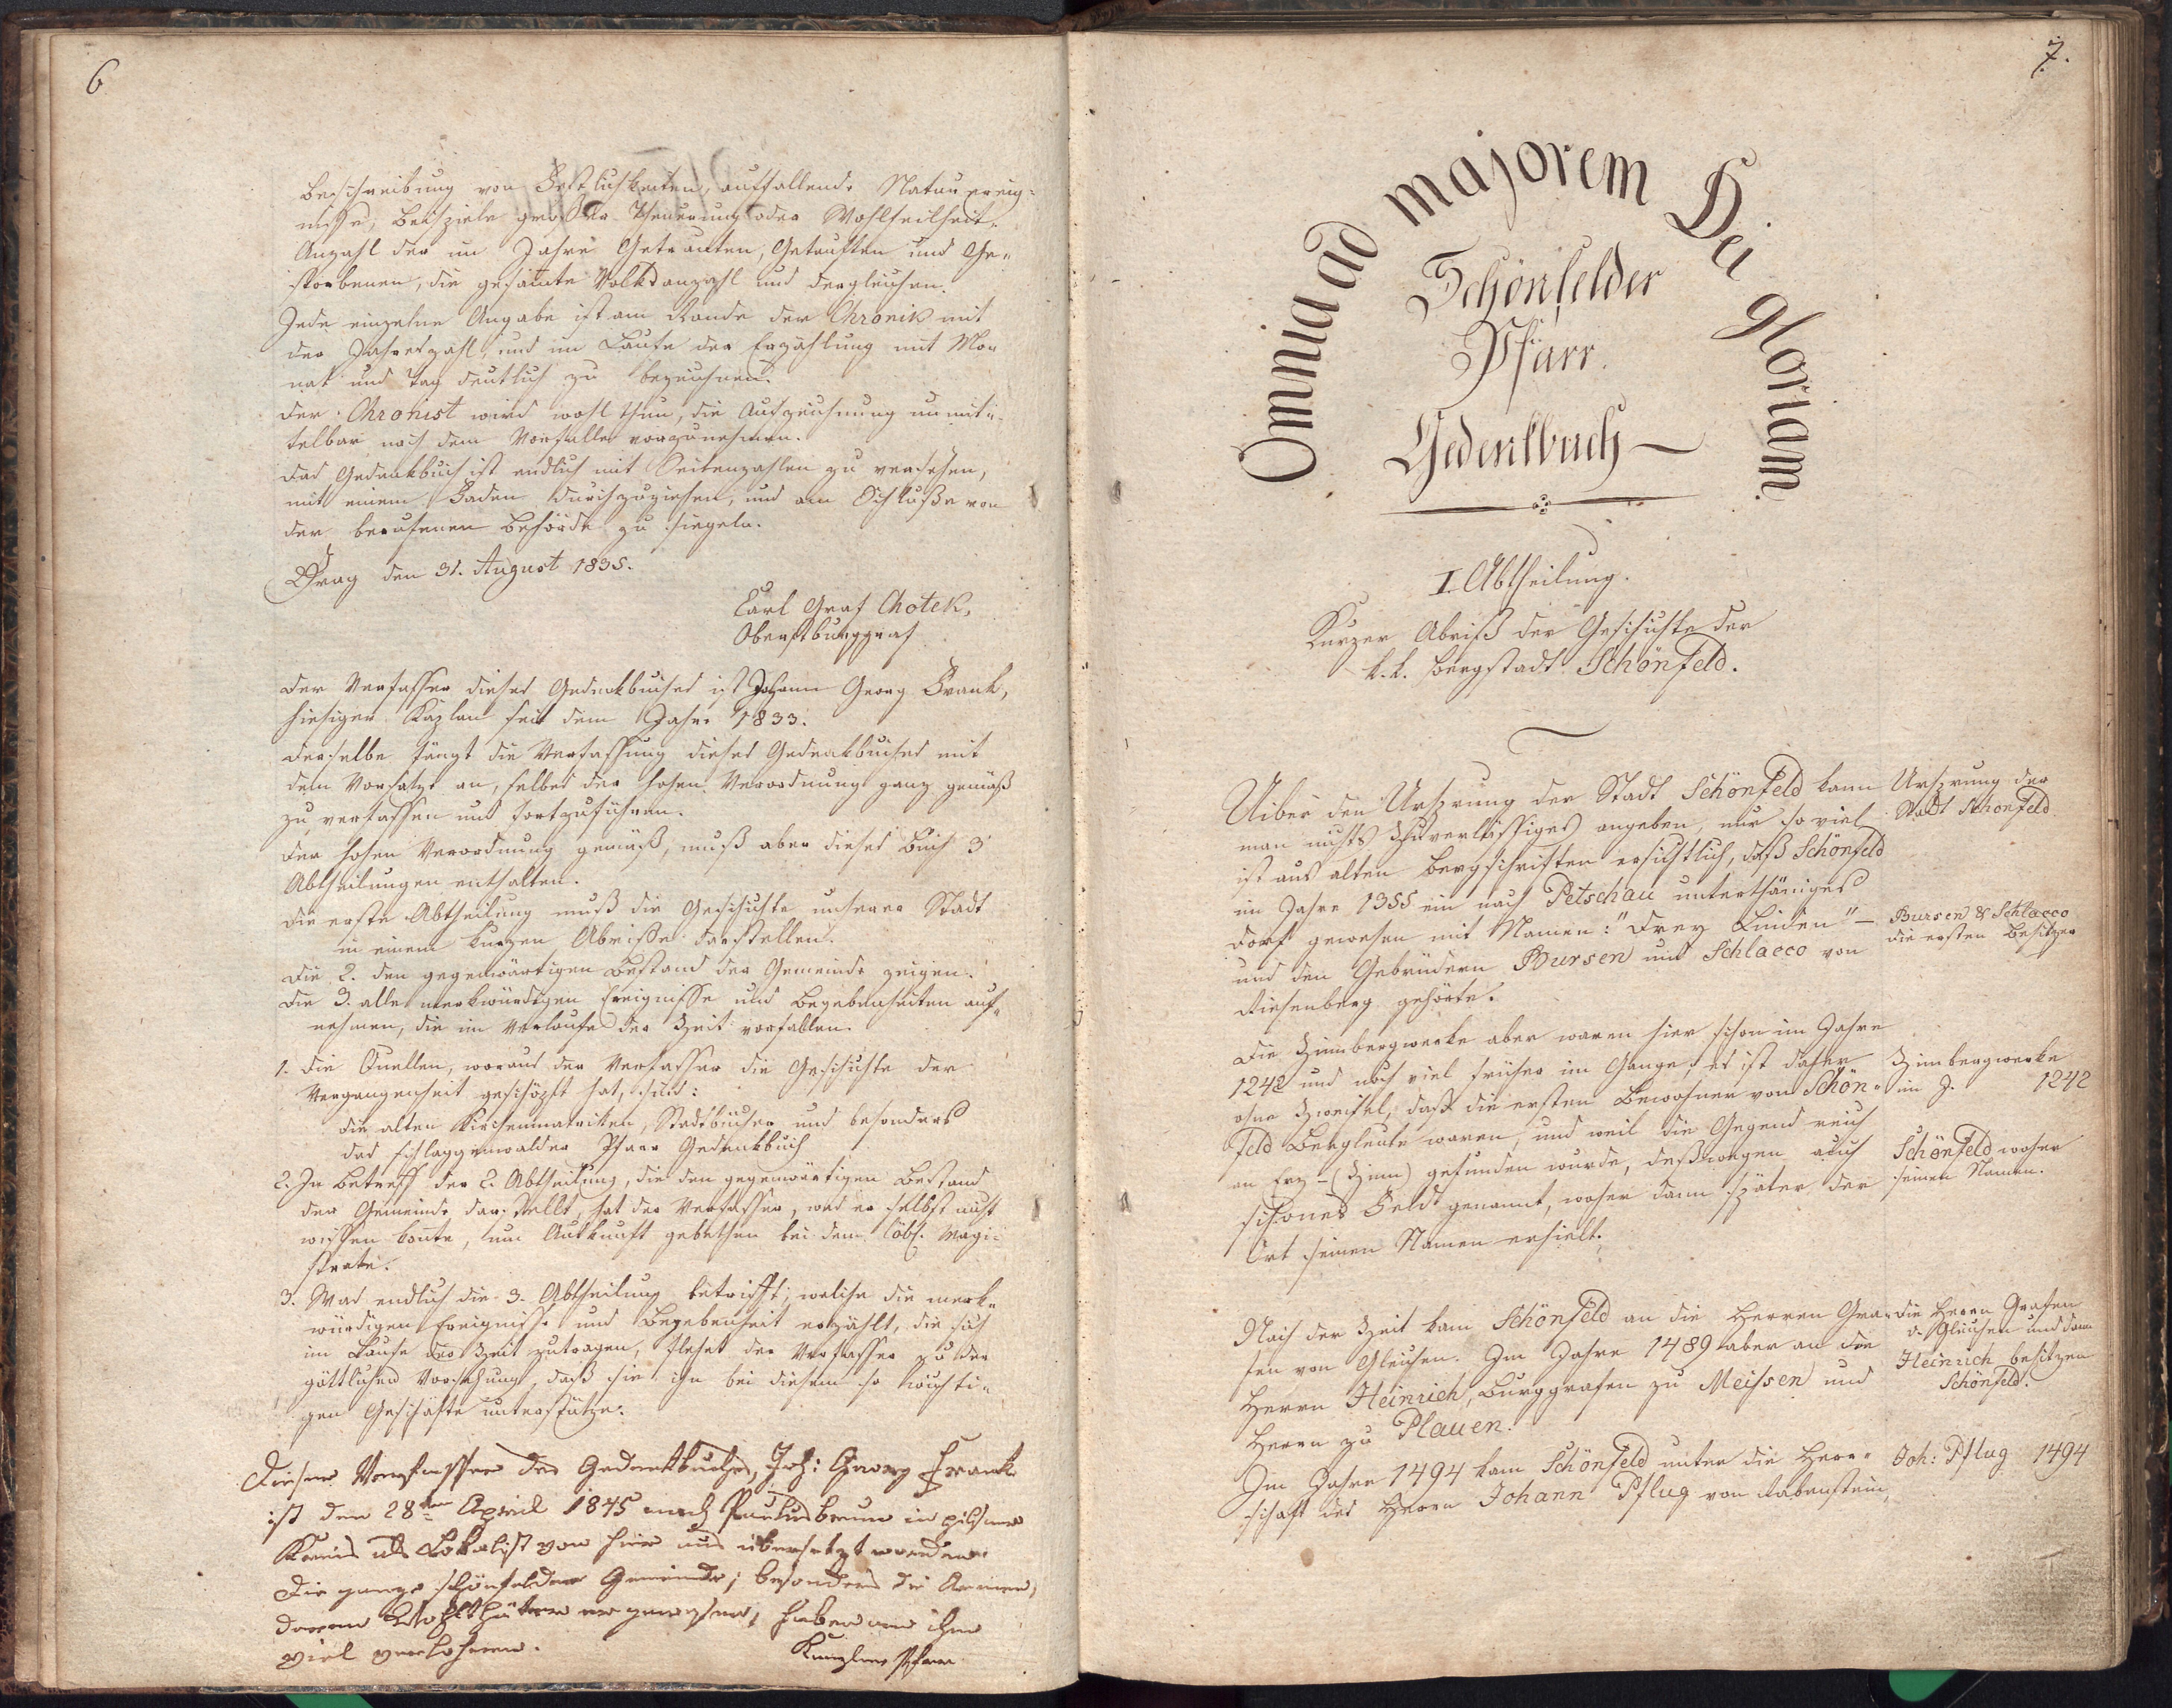 6
Beschreibung von Festlichkeiten, auffallende Naturereig-
nisse, Beispiele großer Theuerung oder Wohlfeilheit,
Anzahl der im Jahre Getrauten, Getauften und Ge-
storbenen, die gesamte Volksanzahl und dergleichen.
Jede einzelne Angabe ist am Rande der Chronik mit
der Jahreszahl, und im Laufe der Erzählung mit Mo-
nat und Tag deutlich zu bezeichnen.
Der Chronist wird wohl thun, die Aufzeichnung unmit-
telbar nach dem Vorfalle vorzunehmen.
Das Gedenkbuch ist endlich mit Seitenzahlen zu versehen,
mit einem Faden durchzuziehen, und am Schluße von
der berufenen Behörde zu siegeln.
Prag den 31. August 1835.
Carl Graf Chotek,
Oberstburggraf
Der Verfasser dieses Gedenkbuches ist Johann Georg Frank,
hiesiger Kaplan seit dem Jahre 1833.
Derselbe fängt die Verfassung dieses Gedenkbuches mit
dem Vorsatze an, selbes der hohen Verordnung ganz gemäß
zu verfassen und fortzuführen.
Der hohen Verordnung gemäß, muß aber dieses Buch 3
Abtheilungen enthalten.
Die erste Abtheilung muß die Geschichte unserer Stadt
in einem kurzen Abriße darstellen.
Die 2. den gegenwärtigen Bestand der Gemeinde zeigen.
Die 3. alle merkwürdigen Ereignisse und Begebenheiten auf-
nehmen, die im Verlaufe der Zeit vorfallen.
1. Die Quellen, woraus der Verfasser die Geschichte der
Vergangenheit geschöpft hat, sind:
die alten Kirchenmatriken, Stadtbücher und besonders
das schlaggenwalder Pfarr Gedenkbuch
2. In Betreff der 2. Abtheilung, die den gegenwärtigen Bestand
der Gemeinde darstellt, hat der Verfasser, was er selbst nicht
wissen konte, um Auskunft gebethen bei dem löbl. Magi-
strate.
3. Was endlich die 3. Abtheilung betrifft, welche die merk-
würdigen Ereignisse und Begebenheit erzählt, die sich
im Laufe der Zeit zutragen, flehet der Verfasser zu der
göttlichen Vorsehung, daß sie ihn bei diesem so wichti-
gen Geschäfte unterstütze.
Dieser Verfasser des Gedenkbuches, Joh: Georg Frank
ist den 28ten April 1845 nach Paulusbrunn in pilsner
Kreis als Lokalist von hier aus übersetzt worden.
Die ganze schönfelder Gemeinde, besonders die Armen,
deren Wohlthäter er gewesen, haben an ihm
viel verlohren.
Pfarr
7.
Omnia ad majorem Dei gloriam.
Schönfelder
Pfarr
Gedenkbuch
I. Abtheilung.
Kurzer Abriß der Geschichte der
k.k. Bergstadt Schönfeld.
Uiber den Ursprung der Stadt Schönfeld kann
man nichts Zuverlässiges angeben, nur so viel
ist aus alten Bergschriften ersichtlich, daß Schönfeld
im Jahre 1355 ein nach Petschau unterthäniges
Dorf gewesen mit Namen: "Drey Linden" –
und den Gebrüdern Bursen und Schlacco von
Riesenberg gehörte.
Ursprung der
Stadt Schönfeld
Bursen & Schlacco
die ersten Besitzer
Die Zinnbergwerke aber waren hier schon im Jahre
1242 und noch viel früher im Gange; es ist daher
ohne Zweifel, daß die ersten Bewohner von Schön-
feld Bergleute waren, und weil die Gegend reich
an Erz – (Zinn) gefunden wurde, deßwegen auch
schönes Feld genannt, woher dann später der
Ort seinen Namen erhielt.
Zinnbergwerke
im J. 1242
Schönfeld woher
seinen Namen.
Nach der Zeit kam Schönfeld an die Herren Gra-
fen von Gleichen. Im Jahre 1489 aber an den
Herrn Heinrich, Burggrafen zu Meissen und
Herrn zu Plauen.
die Herrn Grafen
v. Gleichen und dann
Heinrich besitzen
Schönfeld.
Im Jahre 1494 kam Schönfeld unter die Herr-
schaft des Herrn Johann Pflug von Rabenstein,
Joh: Pflug 1494